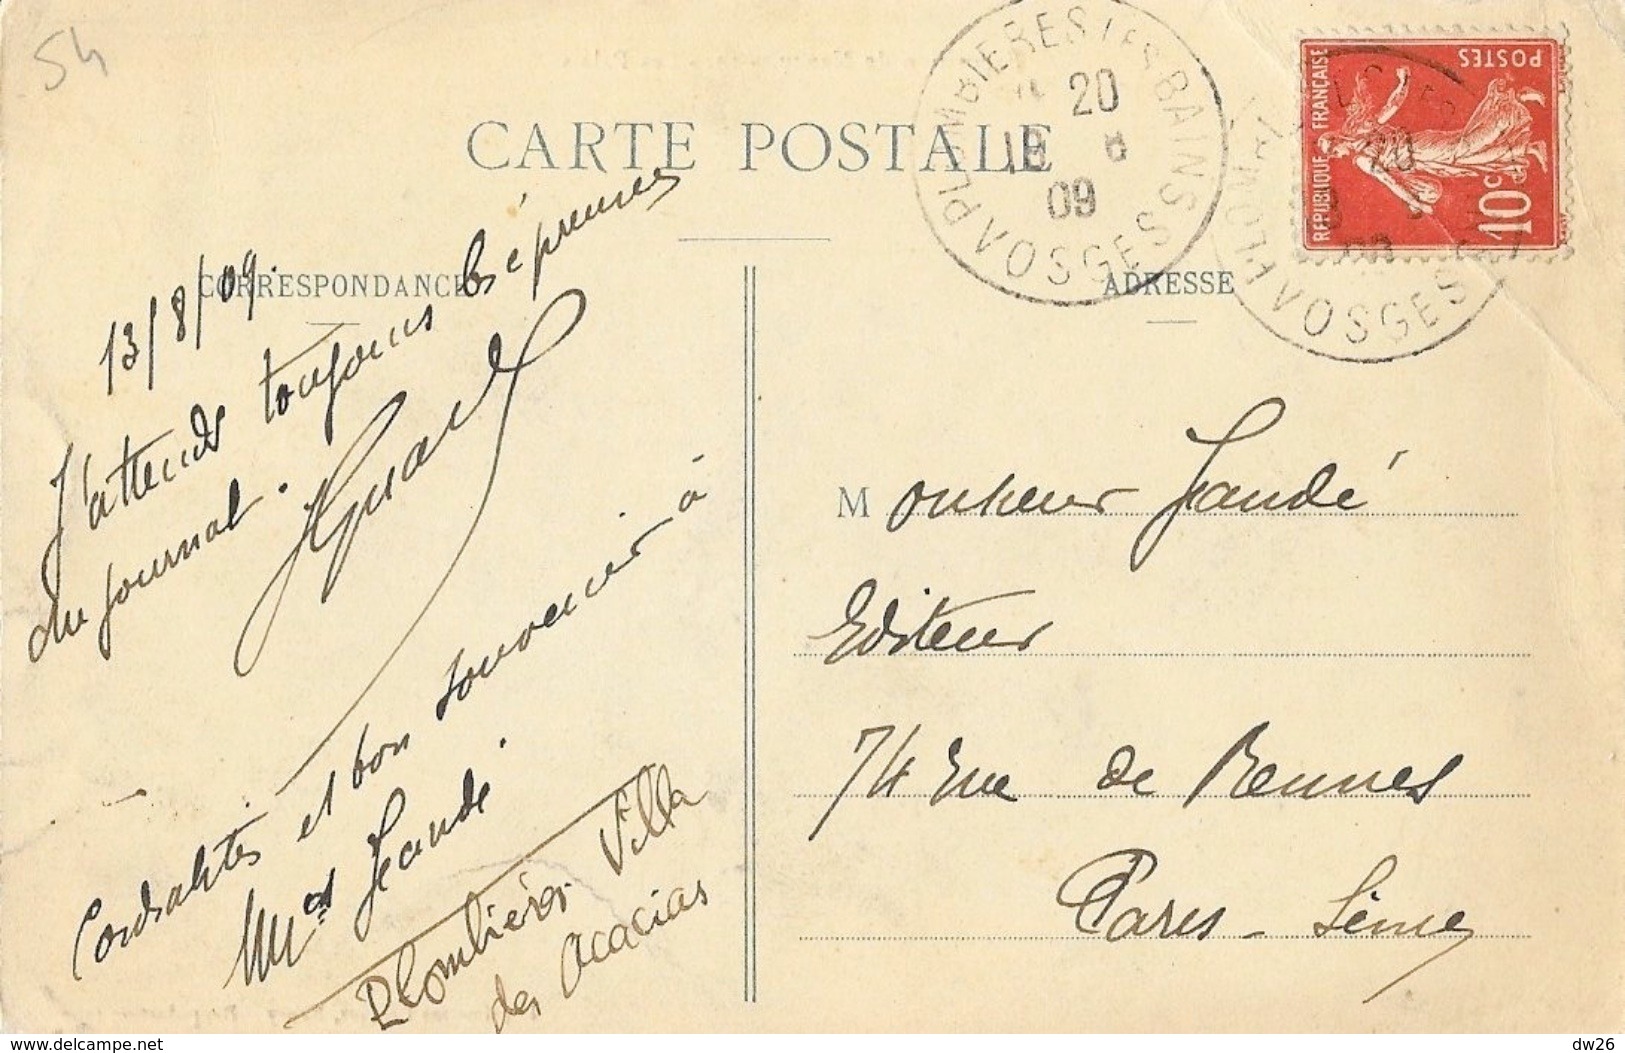 54
CARTE POSTALE
CORRESPONDANCE
ADRESSE
PLOMBIERES LES BAINS
20
18 8
09
VOSGES
POSTES
REPUBLIQUE FRANÇAISE
10c
20
VOSGES
13/8/09.
J'attends toujours les épreuves
du journal.
Cordialités et bon souvenir à
Jeandé.
Plombières Villa
des Acacias
Monsieur Jeandé
Editeur
74 rue de Rennes
Paris - Seine
delcampe.net
dw26